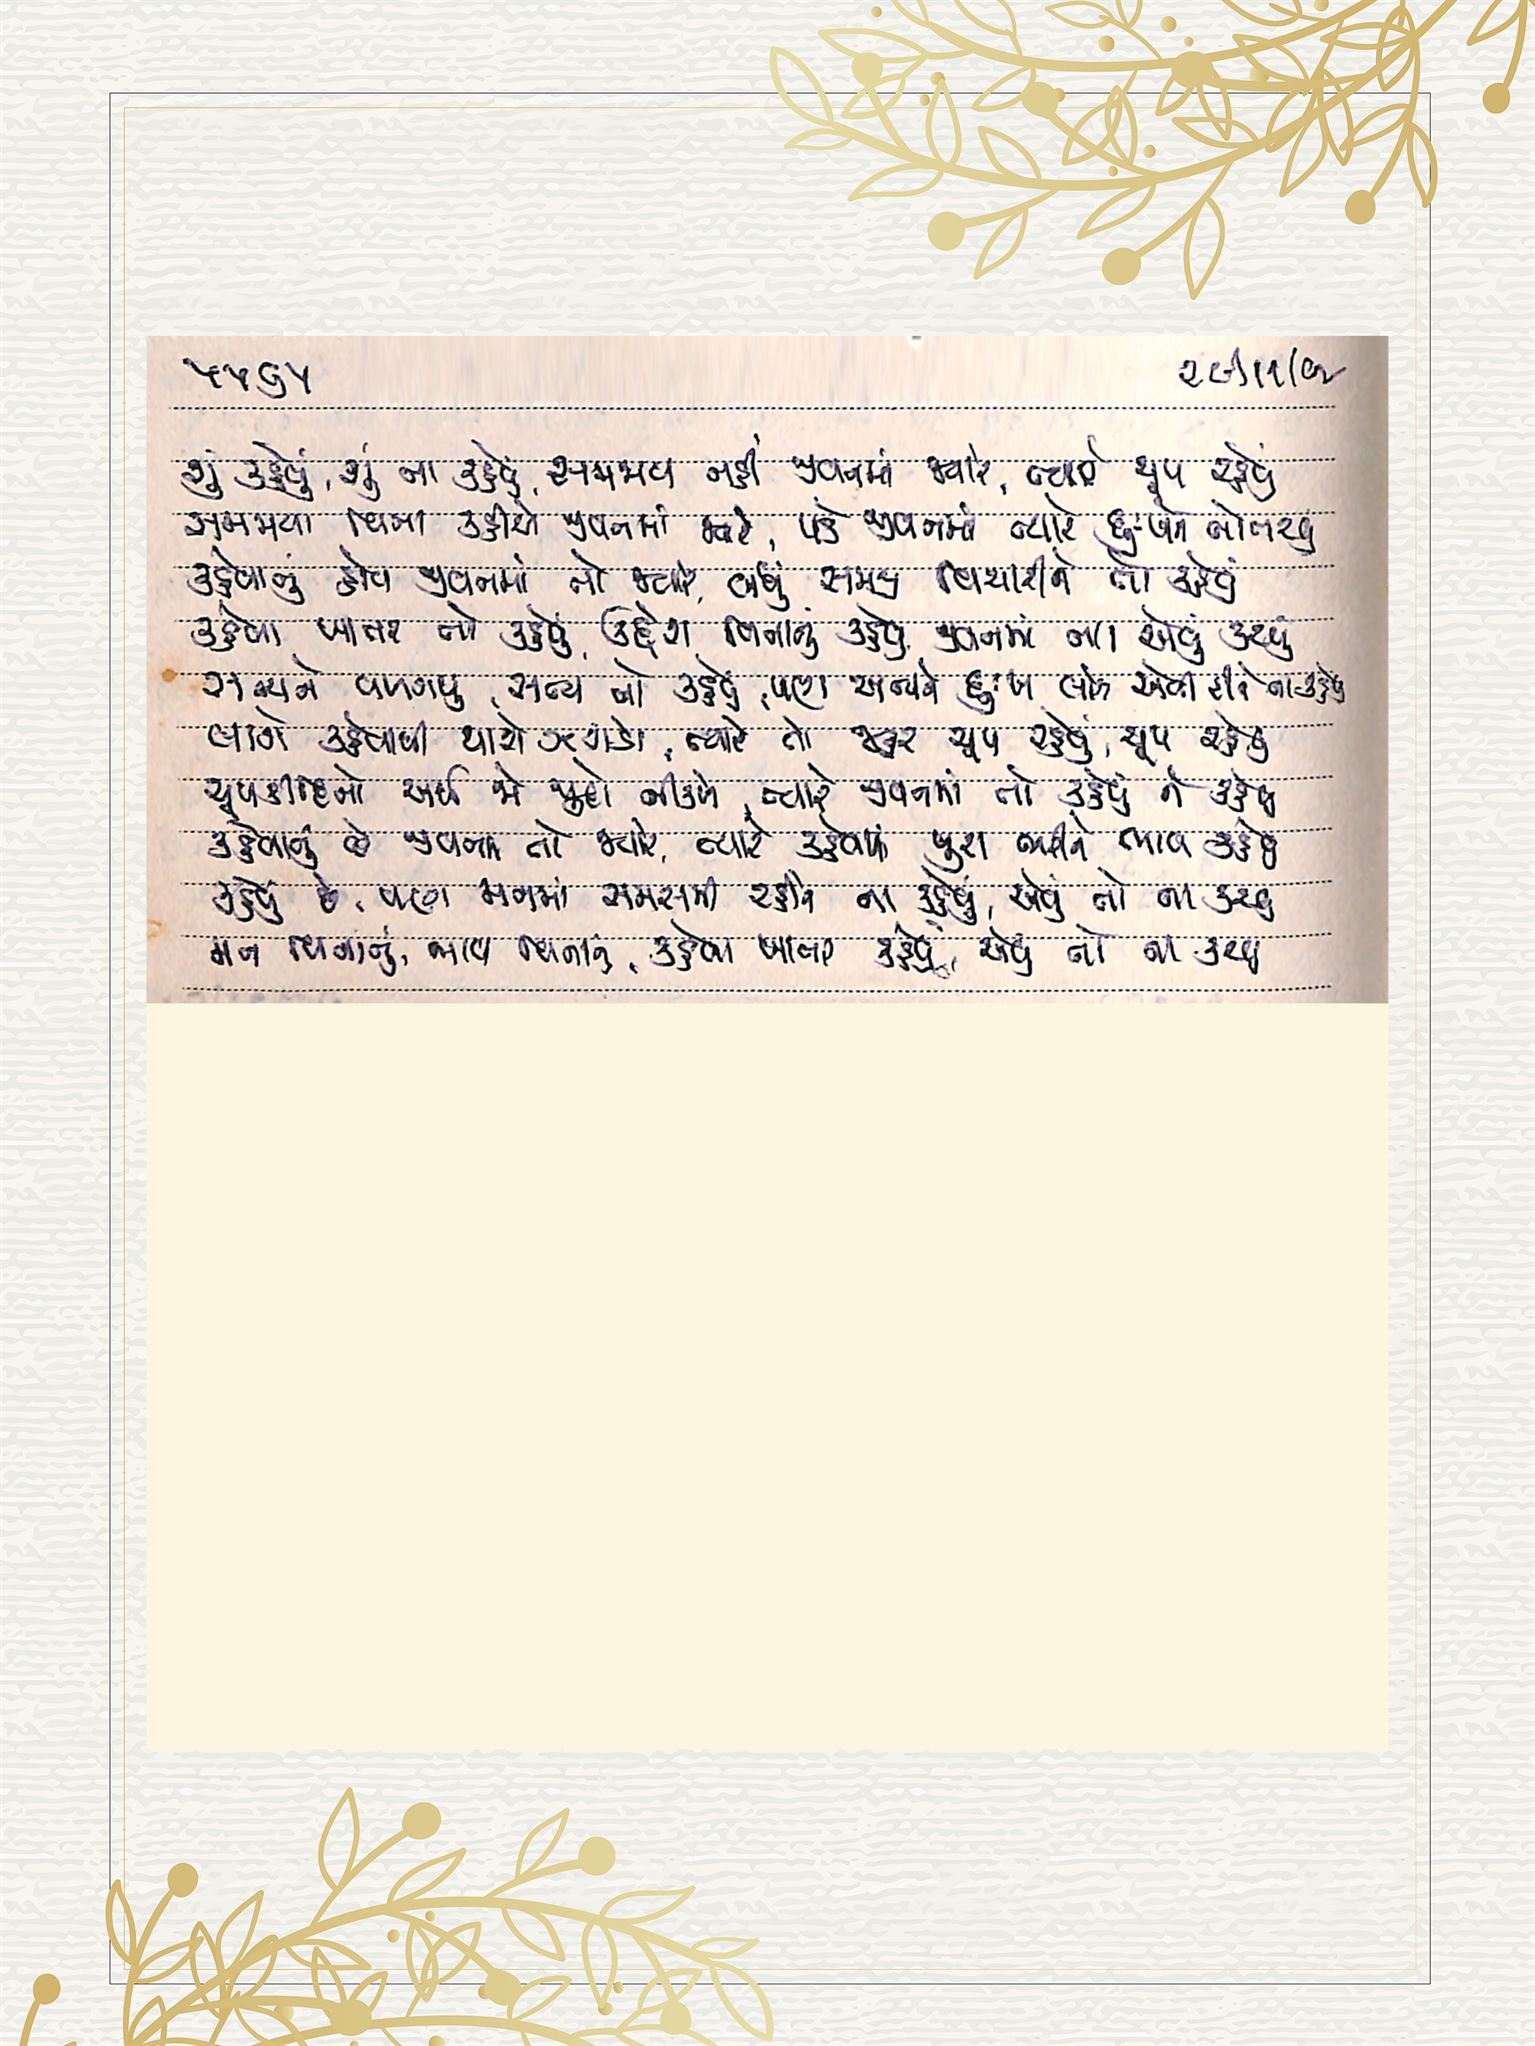 ૫૫૭૫
શું કહેવું, શું ના કહેવું, સમજાય નહીં જીવનમાં જ્યારે, ત્યારે ચૂપ રહેવું
સમજ્યા વિના કહીયે જીવનમાં જ્યારે, પડે જીવનમાં ત્યારે દુઃખને નોતરવું
કહેવાનું હોય જીવનમાં તો જ્યારે, બધું સમજી વિચારીને તો કહેવું
કહેવા ખાતર તો કહેવું, ઉદ્દેશ વિનાનું કહેવું, જીવનમાં ના એવું કરવું
સત્યને વળગવું, સત્ય તો કહેવું, પણ અન્યને દુઃખ લાગે એવી રીતે ના કહેવું
લાગે કહેવાથી થાશે ઝગડો, ત્યારે તો જરૂર ચૂપ રહેવું, ચૂપ રહેવું
ચૂપકીદિનો અર્થ જો જુદો નીકળે, ત્યારે જીવનમાં તો કહેવું ને કહેવું
કહેવાનું છે જીવનમાં તો જ્યારે, ત્યારે કહેવામાં પુરા ભરીને ભાવ કહેવું
કહેવું છે, પણ મનમાં સમસમી રહીને ના કહેવું, એવું તો ના કરવું
મન વિનાનું, ભાવ વિનાનું, કહેવા ખાતર કહેવું, એવું તો ના કરવું